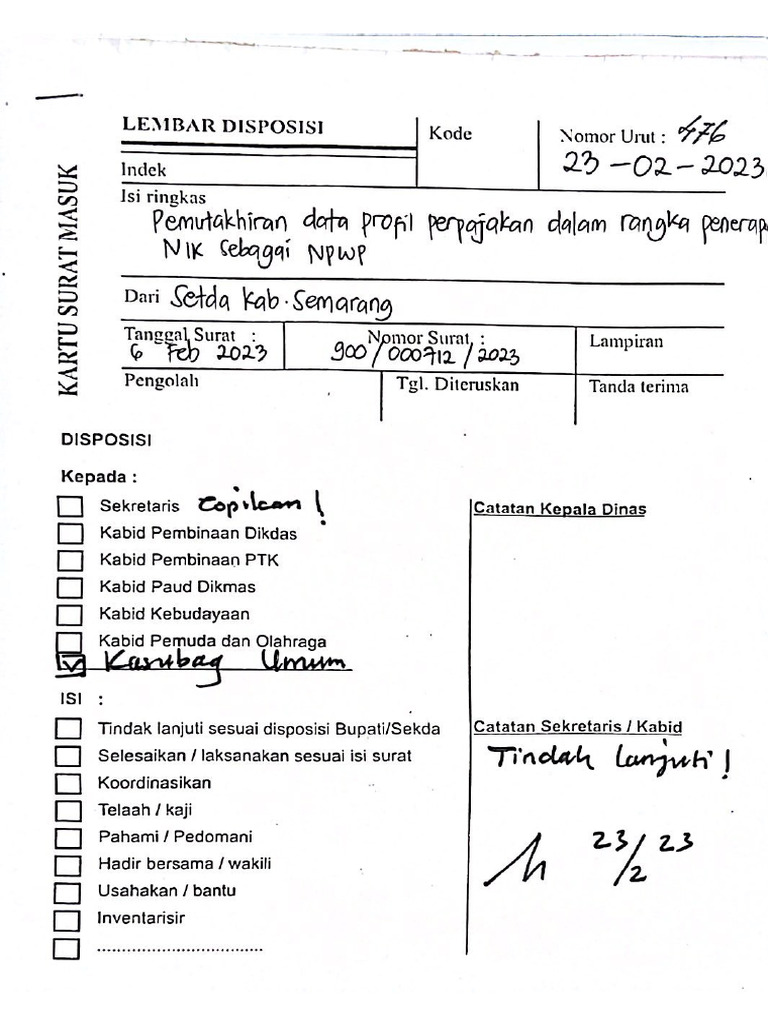 KARTU SURAT MASUK
LEMBAR DISPOSISI
Kode
Nomor Urut : 476
23-02-2023
Indek
Isi ringkas
Pemutakhiran data profil perpajakan dalam rangka penerap
NIK sebagai NPWP
Dari Setda Kab. Semarang
Tanggal Surat :
6 Feb 2023
Nomor Surat :
900/000712/2023
Lampiran
Pengolah
Tgl. Diteruskan
Tanda terima
DISPOSISI
Kepada :
Sekretaris Copilcan!
Kabid Pembinaan Dikdas
Kabid Pembinaan PTK
Kabid Paud Dikmas
Kabid Kebudayaan
Kabid Pemuda dan Olahraga
Kasubag Umum
Catatan Kepala Dinas
ISI :
Tindak lanjuti sesuai disposisi Bupati/Sekda
Selesaikan / laksanakan sesuai isi surat
Koordinasikan
Telaah / kaji
Pahami / Pedomani
Hadir bersama / wakili
Usahakan / bantu
Inventarisir
................................
Catatan Sekretaris / Kabid
Tindak lanjuti!
23/2 23